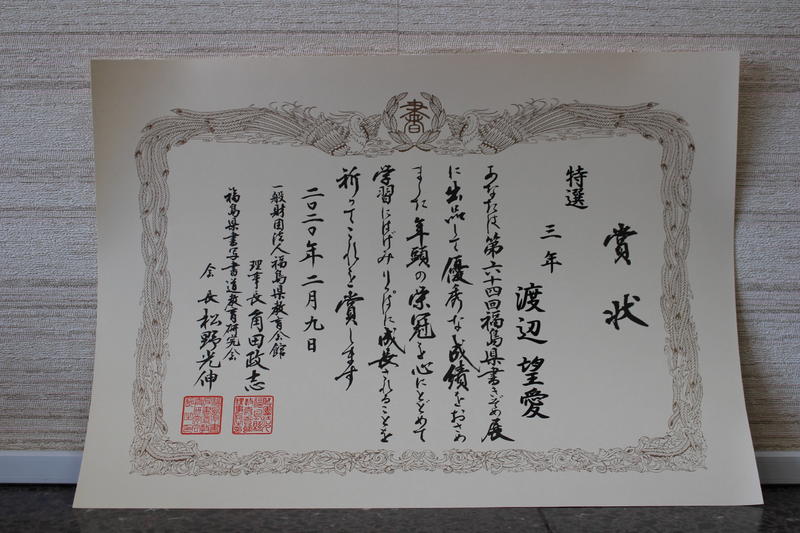 書
賞状
特選
三年
渡辺望愛
あなたは第六十四回福島県書きぞめ展
に出品して優秀な成績をおさめ
ました年頭の栄冠を心にとどめて
学習にはげみりっぱに成長されることを
祈ってこれを賞します
二〇二〇年二月九日
一般財団法人福島県教育会館
理事長角田政志
福島県書写書道教育研究会
会長松野光伸